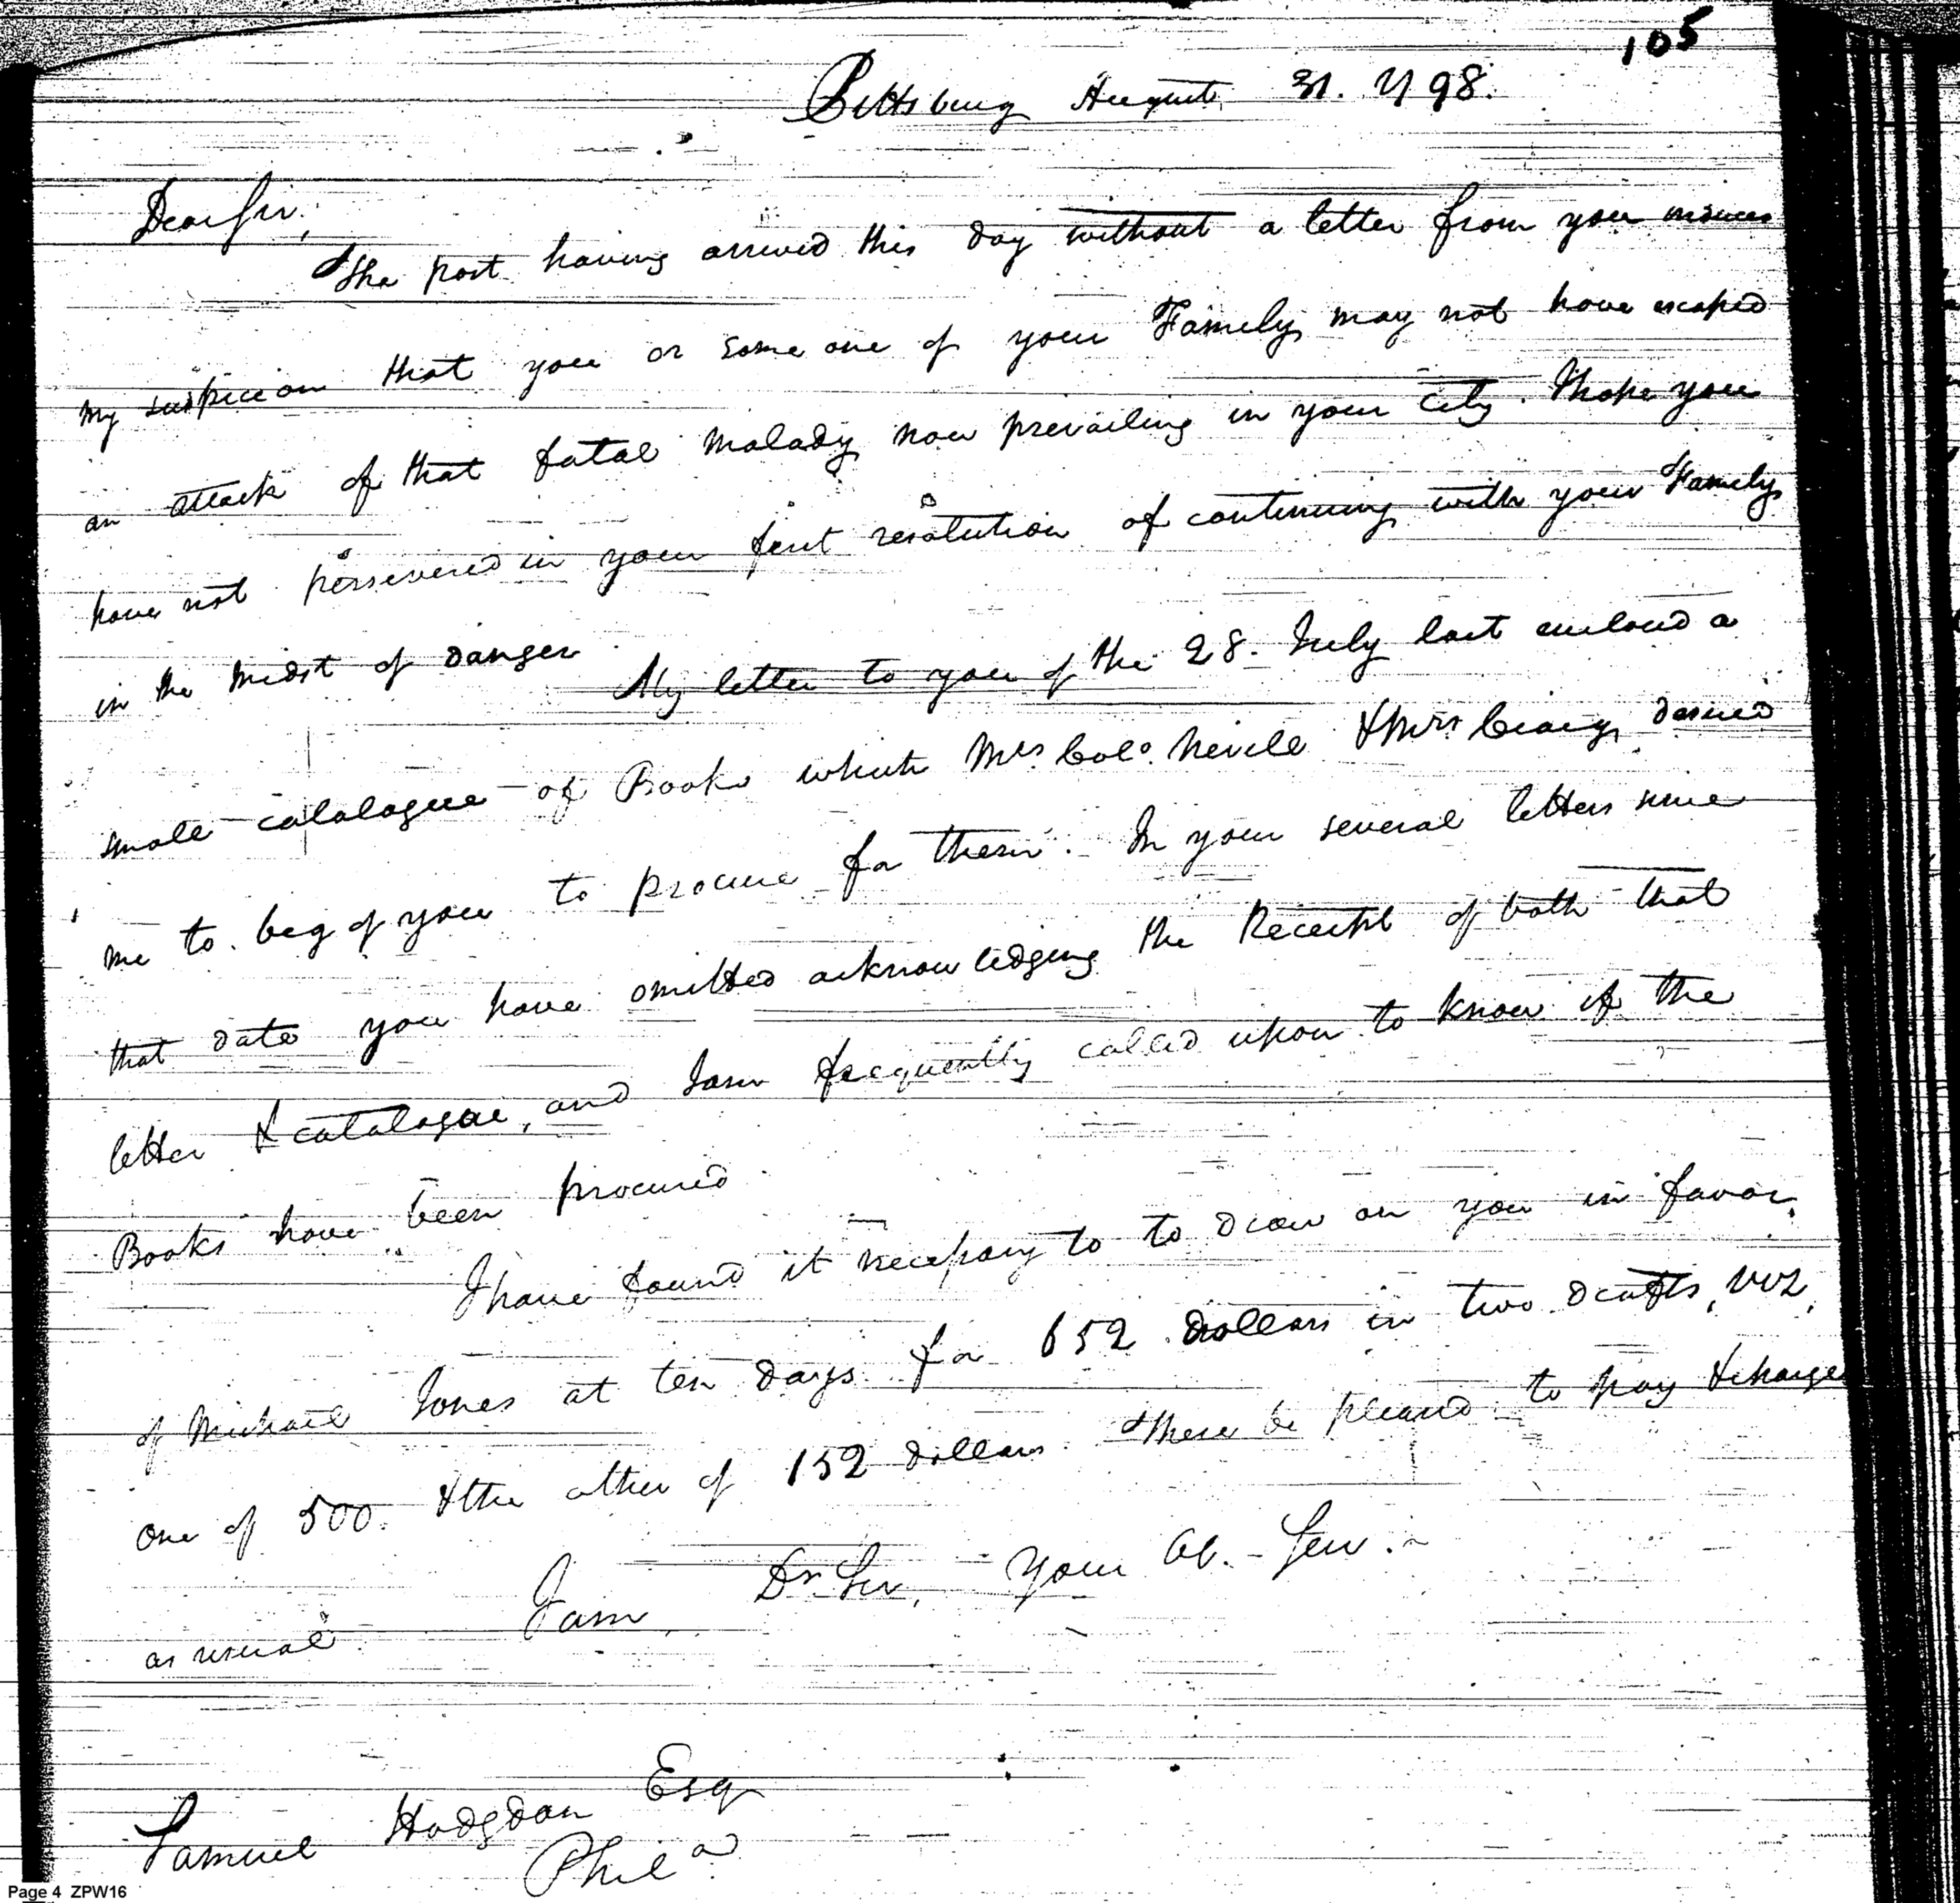 105
Pittsburg August 31. 1798.
Dear Sir,
The post having arrived this day without a letter from you induces
my suspicion that you or some one of your Family may not have escaped
an attack of that fatal malady now prevailing in your City. I hope you
have not persevered in your first resolution of continuing with your Family
in the midst of danger.
My letter to you of the 28. July last enclosed a
small catalogue of Books which Mrs Colo. Nevill & Mrs Craig desired
me to beg of you to procure for them. In your several letters since
that date you have omitted acknowledging the Receipt of both that
letter & catalogue, and I am frequently called upon to know if the
Books have been procured
I have found it necessary to to draw on you in favor
of Michael Jones at ten days for 652 Dollars in two Drafts, viz,
one of 500. & the other of 152 Dollars. These be pleased to pay & charge
as usual
I am, Dr Sir, Your Ob. Serv.
Samuel Hodgdon Esq
Phila
Page 4 ZPW16